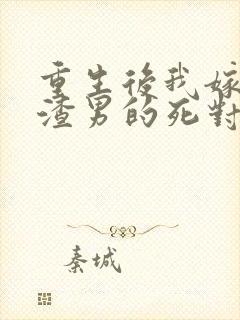 重生後我嫁
渣男的死對
秦城